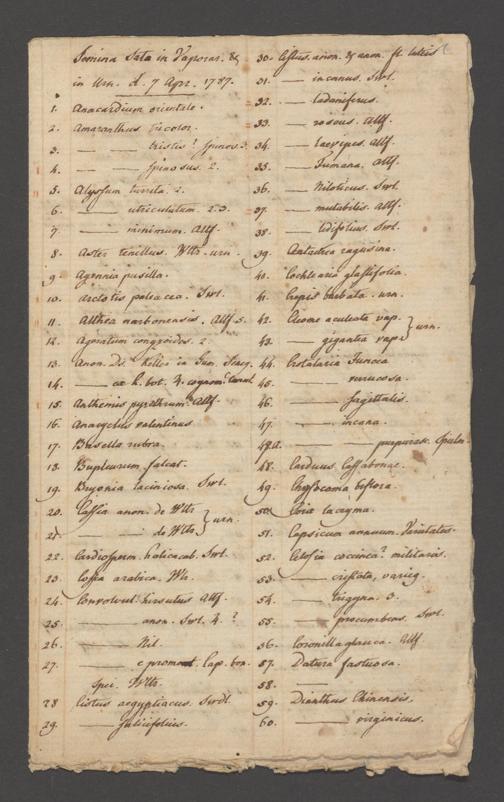 Semina Sata in Vaporar. &
in Urn. d. 7 Apr. 1787.
1. Anacardium orientale.
2. Amaranthus tricolor.
3. — — tristis? Spinos. 3.
4. — — Spinosus. 2.
5. Alyssum turrita. 2.
6. — — utriculatum. 2. 3.
7. — — minimum. Allf.
8. Aster tenellus. Wtr. urn.
9. Ageunia pusilla.
10. Arctotis paleacea. Swl.
11. Althea narbonensis. Allf. 5.
12. Ageratum congzoides. 2.
13. Anon. Ds. Keller in Gum.
14. — ex h. bot. 4. cognom.
15. Anthemis pyrethrum? Allf.
16. Anacyclus valentinus
17. Basella rubra.
18. Bupleurum falcat.
19. Bryonia laciniosa. Swl.
20. Cassia anon. de Wtr
21. — — de Wtr } urn.
22. Cardiosperm. halicacab. Swl.
23. Coffea arabica. Wtr.
24. Convolvul. hirsutus Allf.
25. — — anon. Swl. 4. ?
26. — — Nil.
27. — — e promont. Cap. bon.
Spei. Wtr.
28 Cistus aegyptiacus. Swl.
29. — Salicifolius.
30. Cistus. anon. & anon. fl. luteis
31. — incanus. Swl.
32. — ladaniferus.
33. — roseus. Allf.
34. — laevipes. Allf.
35. — Fumana. Allf.
36. — Niloticus. Swl.
37. — mutabilis. Allf.
38. — ledifolius. Swl.
39. Centaurea ragusina.
40. Cochlearia glastifolia.
41. Crepis barbata. urn.
42. Cleome aculeata vap.
43. — gigantea vap. } urn.
44. Crotalaria Juncea
45. — verrucosa.
46. — sagittalis.
47. — incana.
47.a. — purpurasc.
48. Carduus Cassabonae.
49. Chrysocoma biflora.
50. Coix lacryma.
51. Capsicum annuum. Varietates.
52. Celosia coccinea? militaris.
53. — cristata, varieg.
54. — trigyna. 3.
55. — procumbens. Swl.
56. Coronilla glauca. Allf
57. Datura fastuosa.
58. —
59. Dianthus Chinensis.
60. — virginicus.